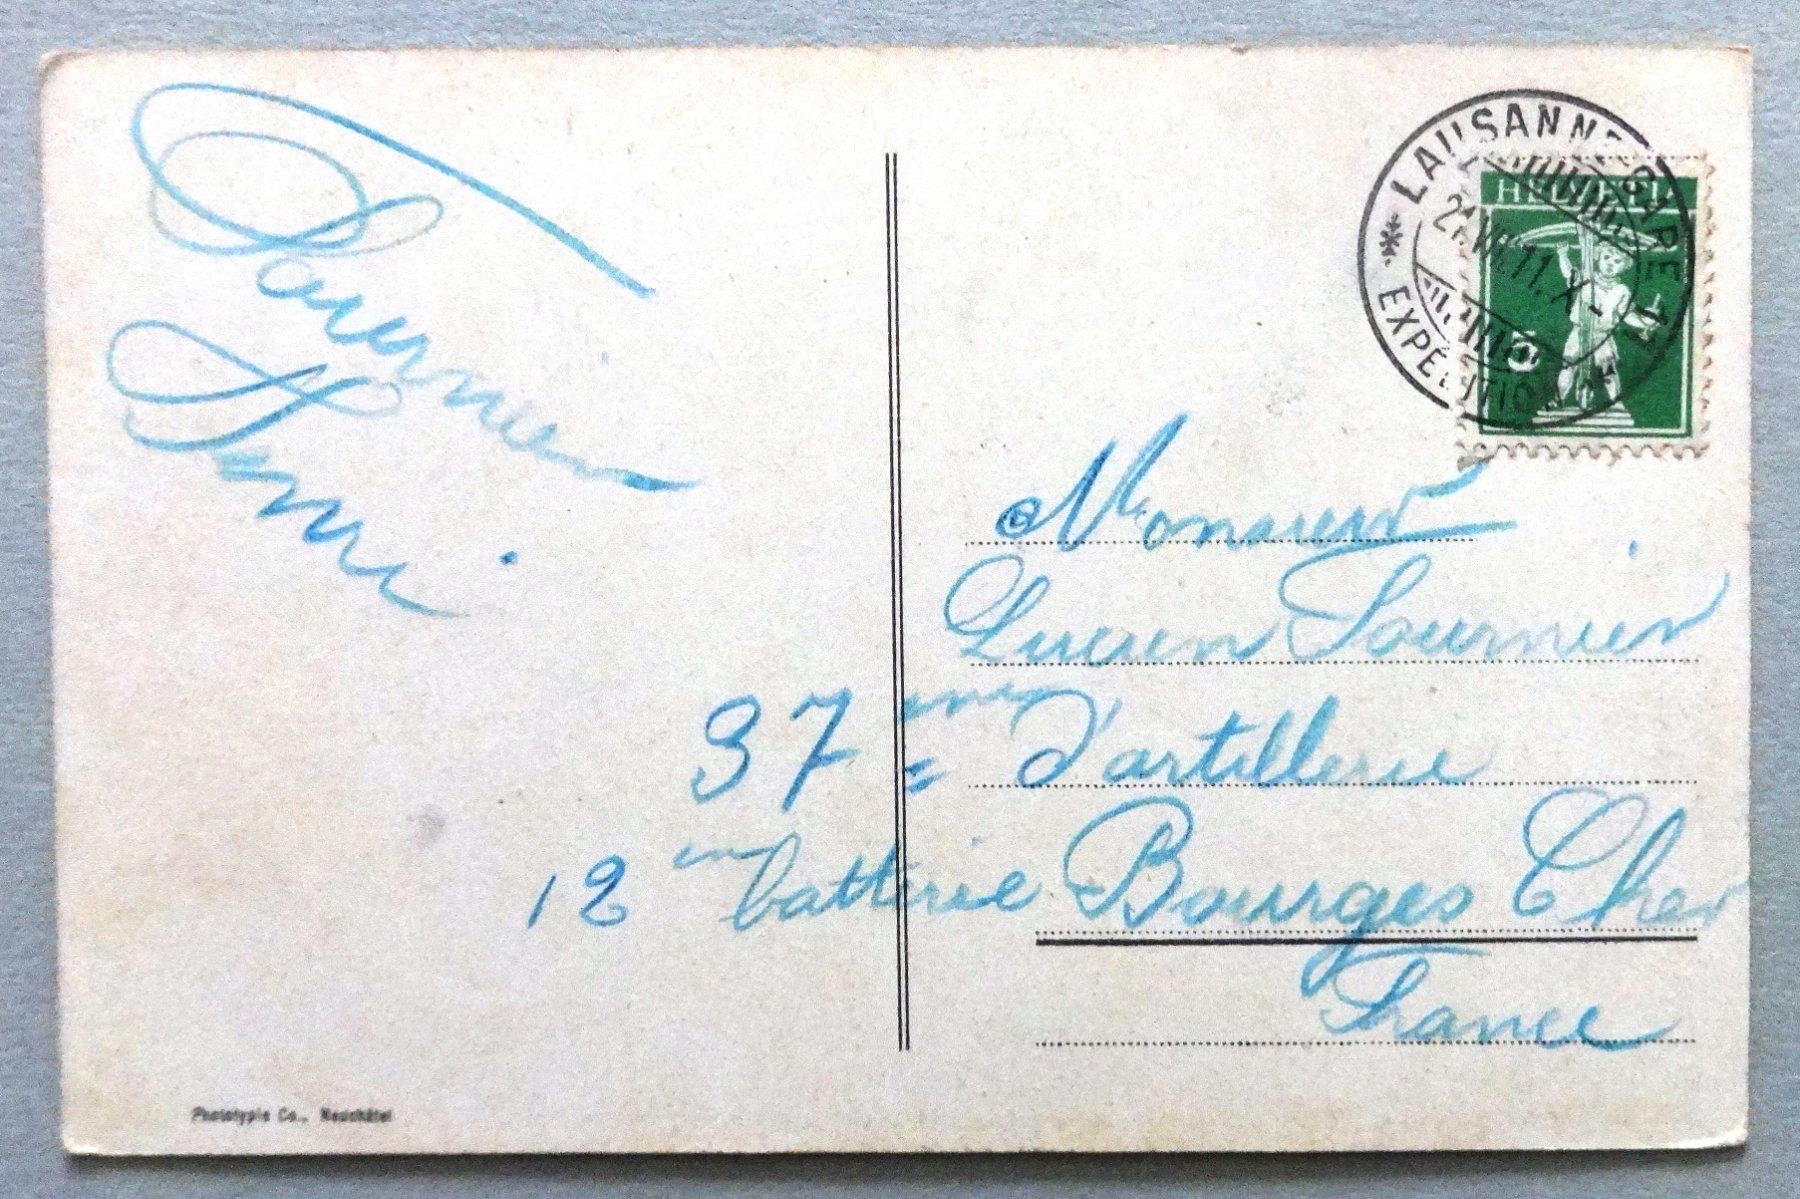 Fournier
Henri
LAUSANNE GARE
21.VII.11.X-
EXPÉDITION
HELVETIA
5
Monsieur
Lucien Fournier
37ème d'artillerie
12em batterie Bourges Cher
France
Phototypie Co., Neuchâtel